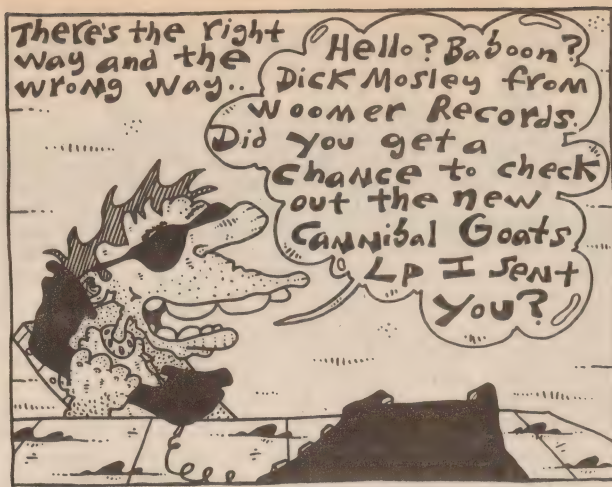 There's the right
way and the
wrong way..
Hello? Baboon?
Dick Mosley from
Woomer Records.
Did you get a
chance to check
out the new
Cannibal Goats
LP I sent
you?